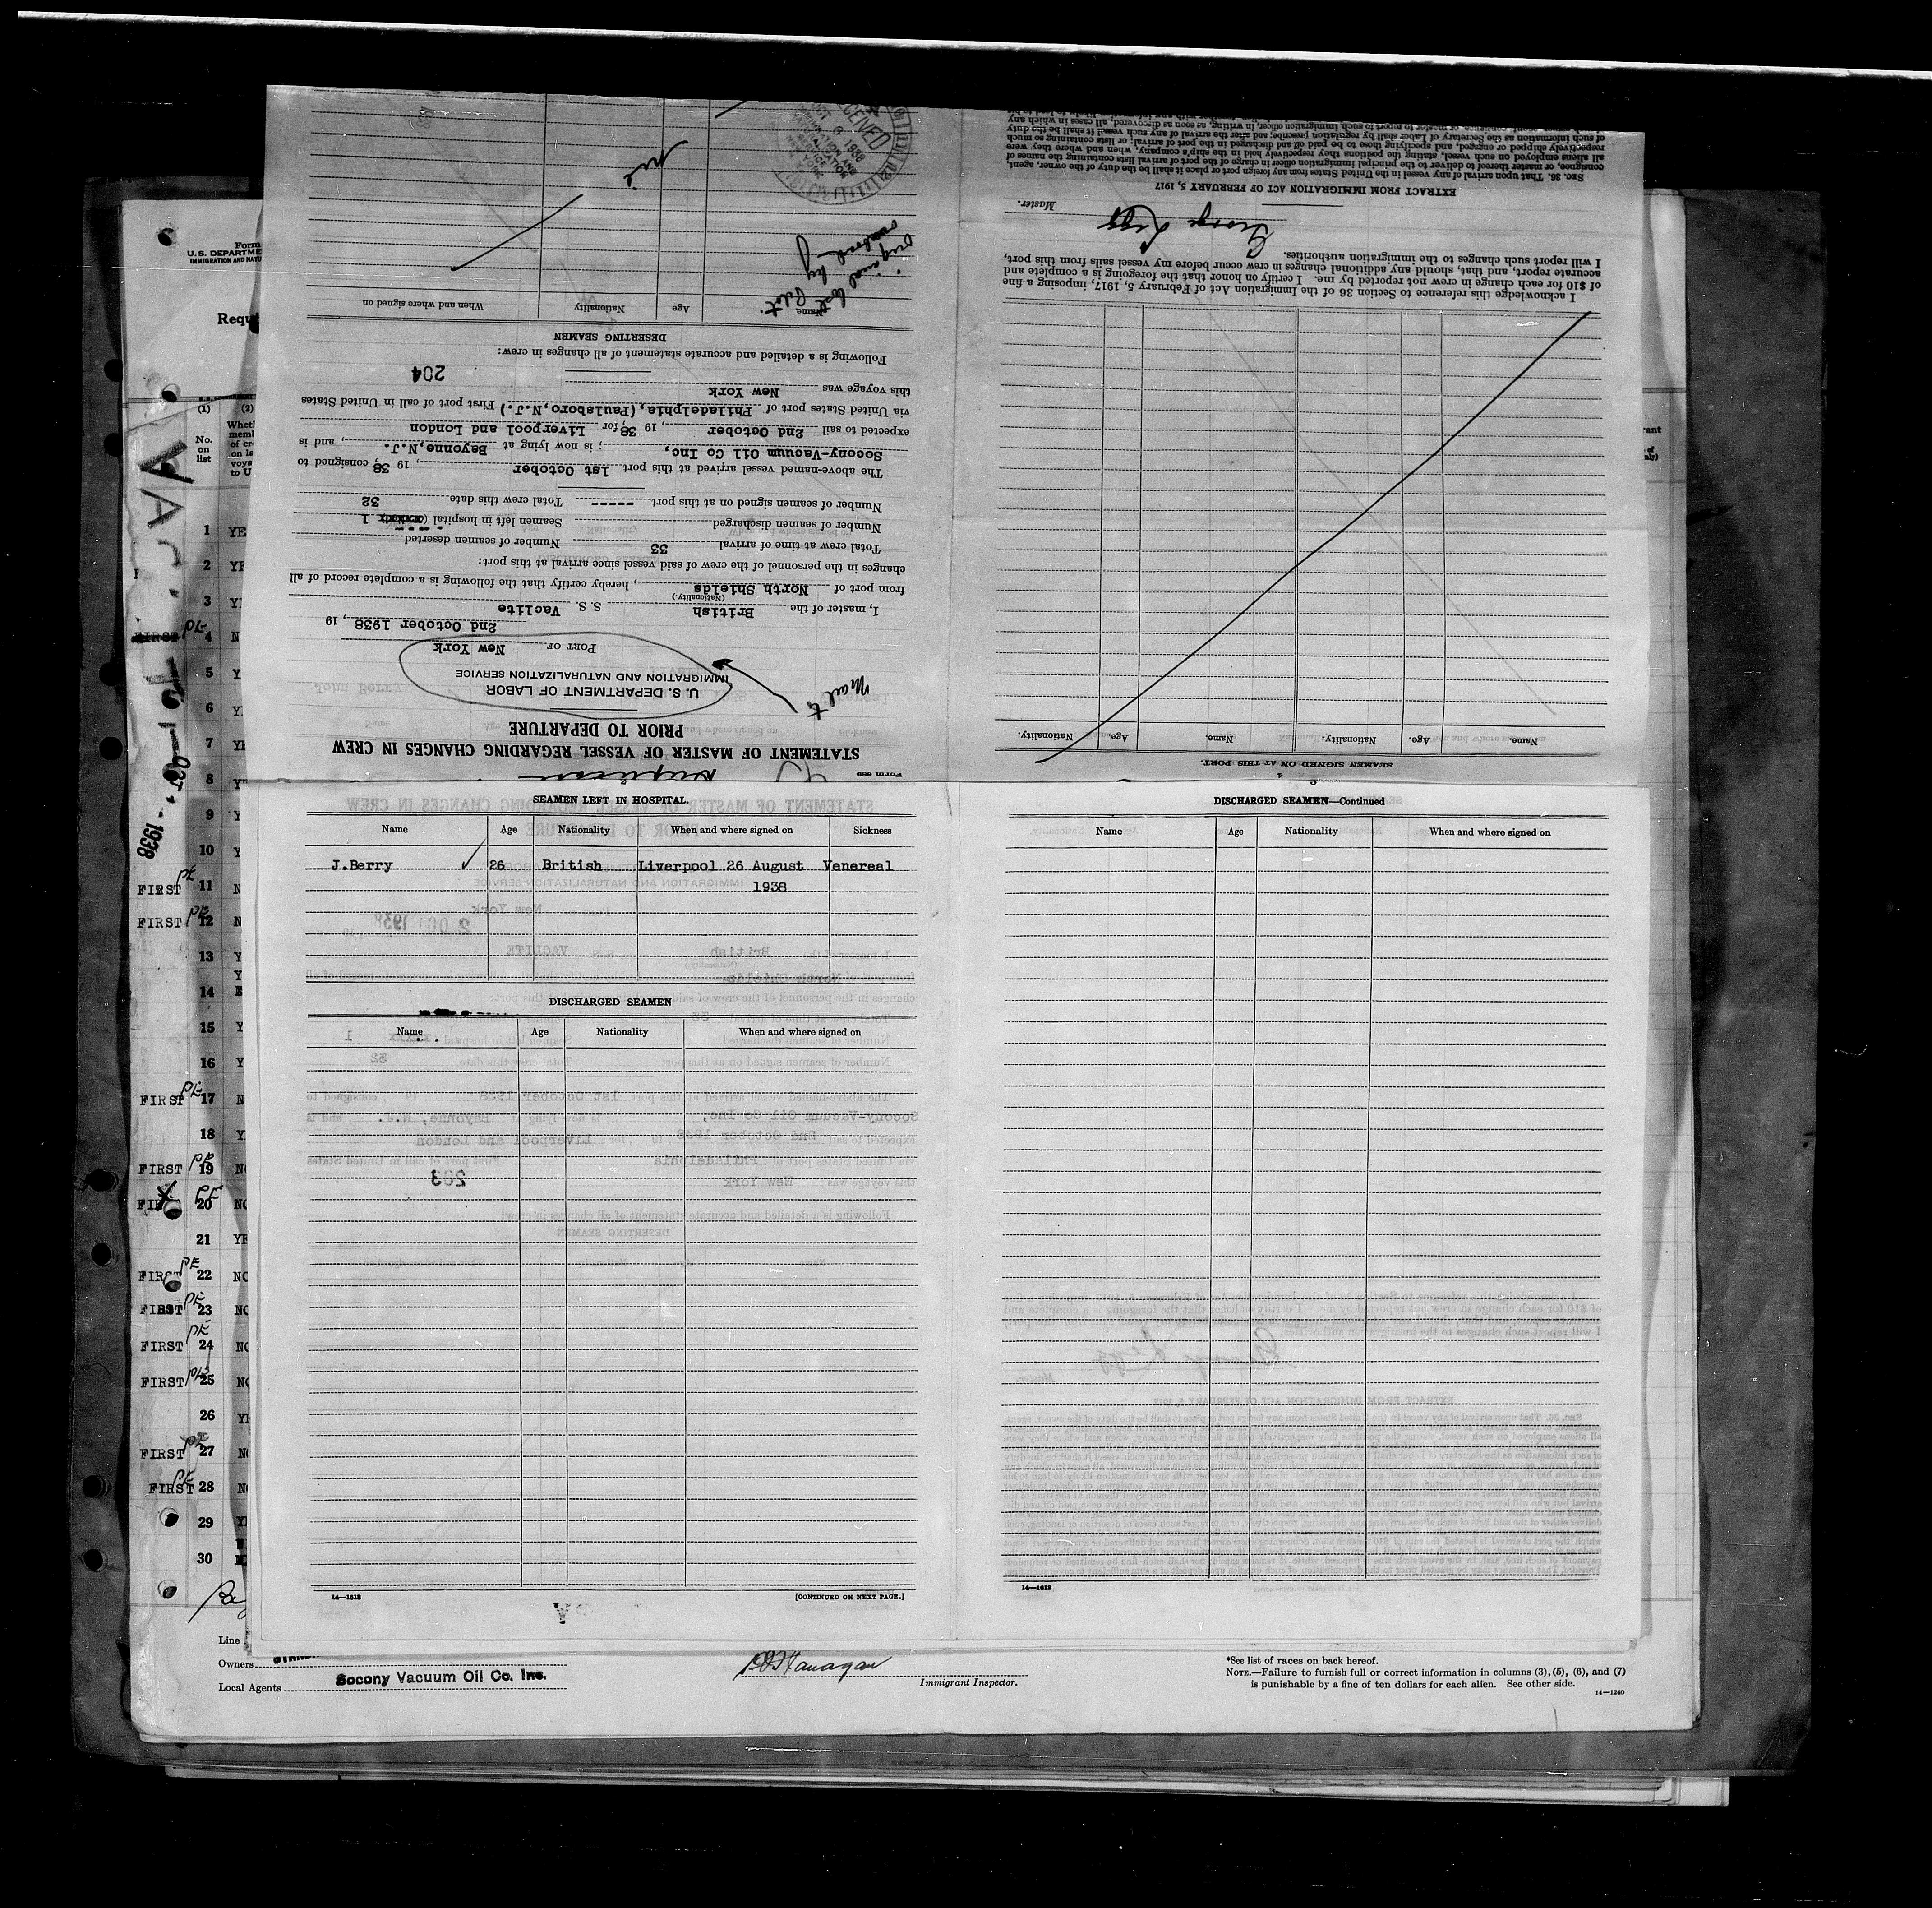 Form 689
STATEMENT OF MASTER OF VESSEL REGARDING CHANGES IN CREW
PRIOR TO DEPARTURE
Mail to
U. S. DEPARTMENT OF LABOR
IMMIGRATION AND NATURALIZATION SERVICE
PORT OF New York
2nd October 1938, 19
I, master of the British S. S. Vaclite
(Nationality.)
from port of North Shields, hereby certify that the following is a complete record of all
changes in the personnel of the crew of said vessel since arrival at this port:
Total crew at time of arrival 33 Number of seamen deserted
Number of seamen discharged Seamen left in hospital 1
Number of seamen signed on at this port ----- Total crew this date 32
The above-named vessel arrived at this port 1st October, 19 38, consigned to
Socony-Vacuum Oil Co Inc, ; is now lying at Bayonne, N.J., and is
expected to sail 2nd October, 19 38, for Liverpool and London
via United States port of Philadelphia, (Paulsboro, N.J.) First port of call in United States
this voyage was New York
204
Following is a detailed and accurate statement of all changes in crew:
DESERTING SEAMEN
Name Age Nationality When and where signed on
original lost by Pilot
overboard
nil
RECEIVED
OCT 6 1938
SEAMEN SIGNED ON AT THIS PORT.
Name. Age. Nationality. Name. Age. Nationality.
I acknowledge this reference to Section 36 of the Immigration Act of February 5, 1917, imposing a fine
of $10 for each change in crew not reported by me. I certify on honor that the foregoing is a complete and
accurate report, and that, should any additional changes in crew occur before my vessel sails from this port,
I will report such changes to the immigration authorities.
George Legg
Master.
EXTRACT FROM IMMIGRATION ACT OF FEBRUARY 5, 1917
SEC. 36. That upon arrival of any vessel in the United States from any foreign port or place it shall be the duty of the owner, agent,
consignee, or master thereof to deliver to the principal immigration officer in charge of the port of arrival lists containing the names of
all aliens employed on such vessel, stating the positions they respectively hold in the ship's company, when and where they were
respectively shipped or engaged, and specifying those to be paid off and discharged in the port of arrival; or lists containing so much
of such information as the Secretary of Labor shall by regulation prescribe; and after the arrival of any such vessel it shall be the duty
SEAMEN LEFT IN HOSPITAL.
Name Age Nationality When and where signed on Sickness
J.Berry ✓ 26 British Liverpool 26 August Venereal
1938
DISCHARGED SEAMEN
Name Age Nationality When and where signed on
14—1613
[CONTINUED ON NEXT PAGE.]
DISCHARGED SEAMEN—Continued
Name Age Nationality When and where signed on
14—1613
Form
U. S. DEPARTME
IMMIGRATION AND NATU
Requ
(1) (2)
No.
on
list
1 YE
2 YE
3 Y
FIRST PE 4 N
5 Y
6 Y
7 YE
8 Y
9 Y
10 Y
FIRST PE 11 N
FIRST PE 12 N
13 Y
14
15 Y
16 Y
FIRST PE 17 N
18 Y
FIRST PE 19 NO
PE 20 NO
21 YE
FIRST PE 22 NO
FIRST PE 23 NO
FIRST PE 24 NO
FIRST PE 25 NO
26 YE
FIRST PE 27 NO
FIRST PE 28 NO
29 YE
30
1938
Line
Owners
Local Agents Socony Vacuum Oil Co. Inc.
Immigrant Inspector.
*See list of races on back hereof.
NOTE.—Failure to furnish full or correct information in columns (3), (5), (6), and (7)
is punishable by a fine of ten dollars for each alien. See other side.
14—1240